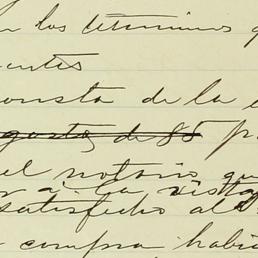 en los términos q
entes
onsta de la e
agosto, de 85 p
el notario que
r á la vista
satisfecho al
compra habi